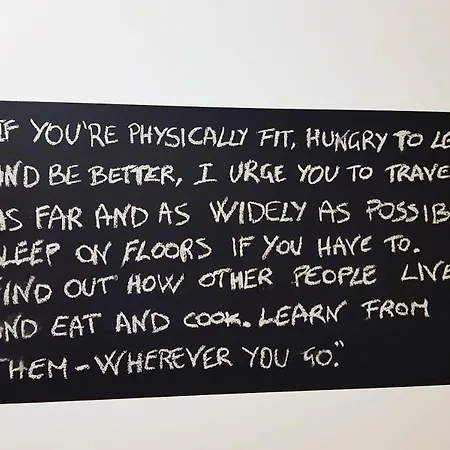 IF YOU'RE PHYSICALLY FIT, HUNGRY TO LE
AND BE BETTER, I URGE YOU TO TRAVE
AS FAR AND AS WIDELY AS POSSIB
LEEP ON FLOORS IF YOU HAVE TO.
FIND OUT HOW OTHER PEOPLE LIVE
ND EAT AND COOK. LEARN FROM
THEM – WHEREVER YOU GO."